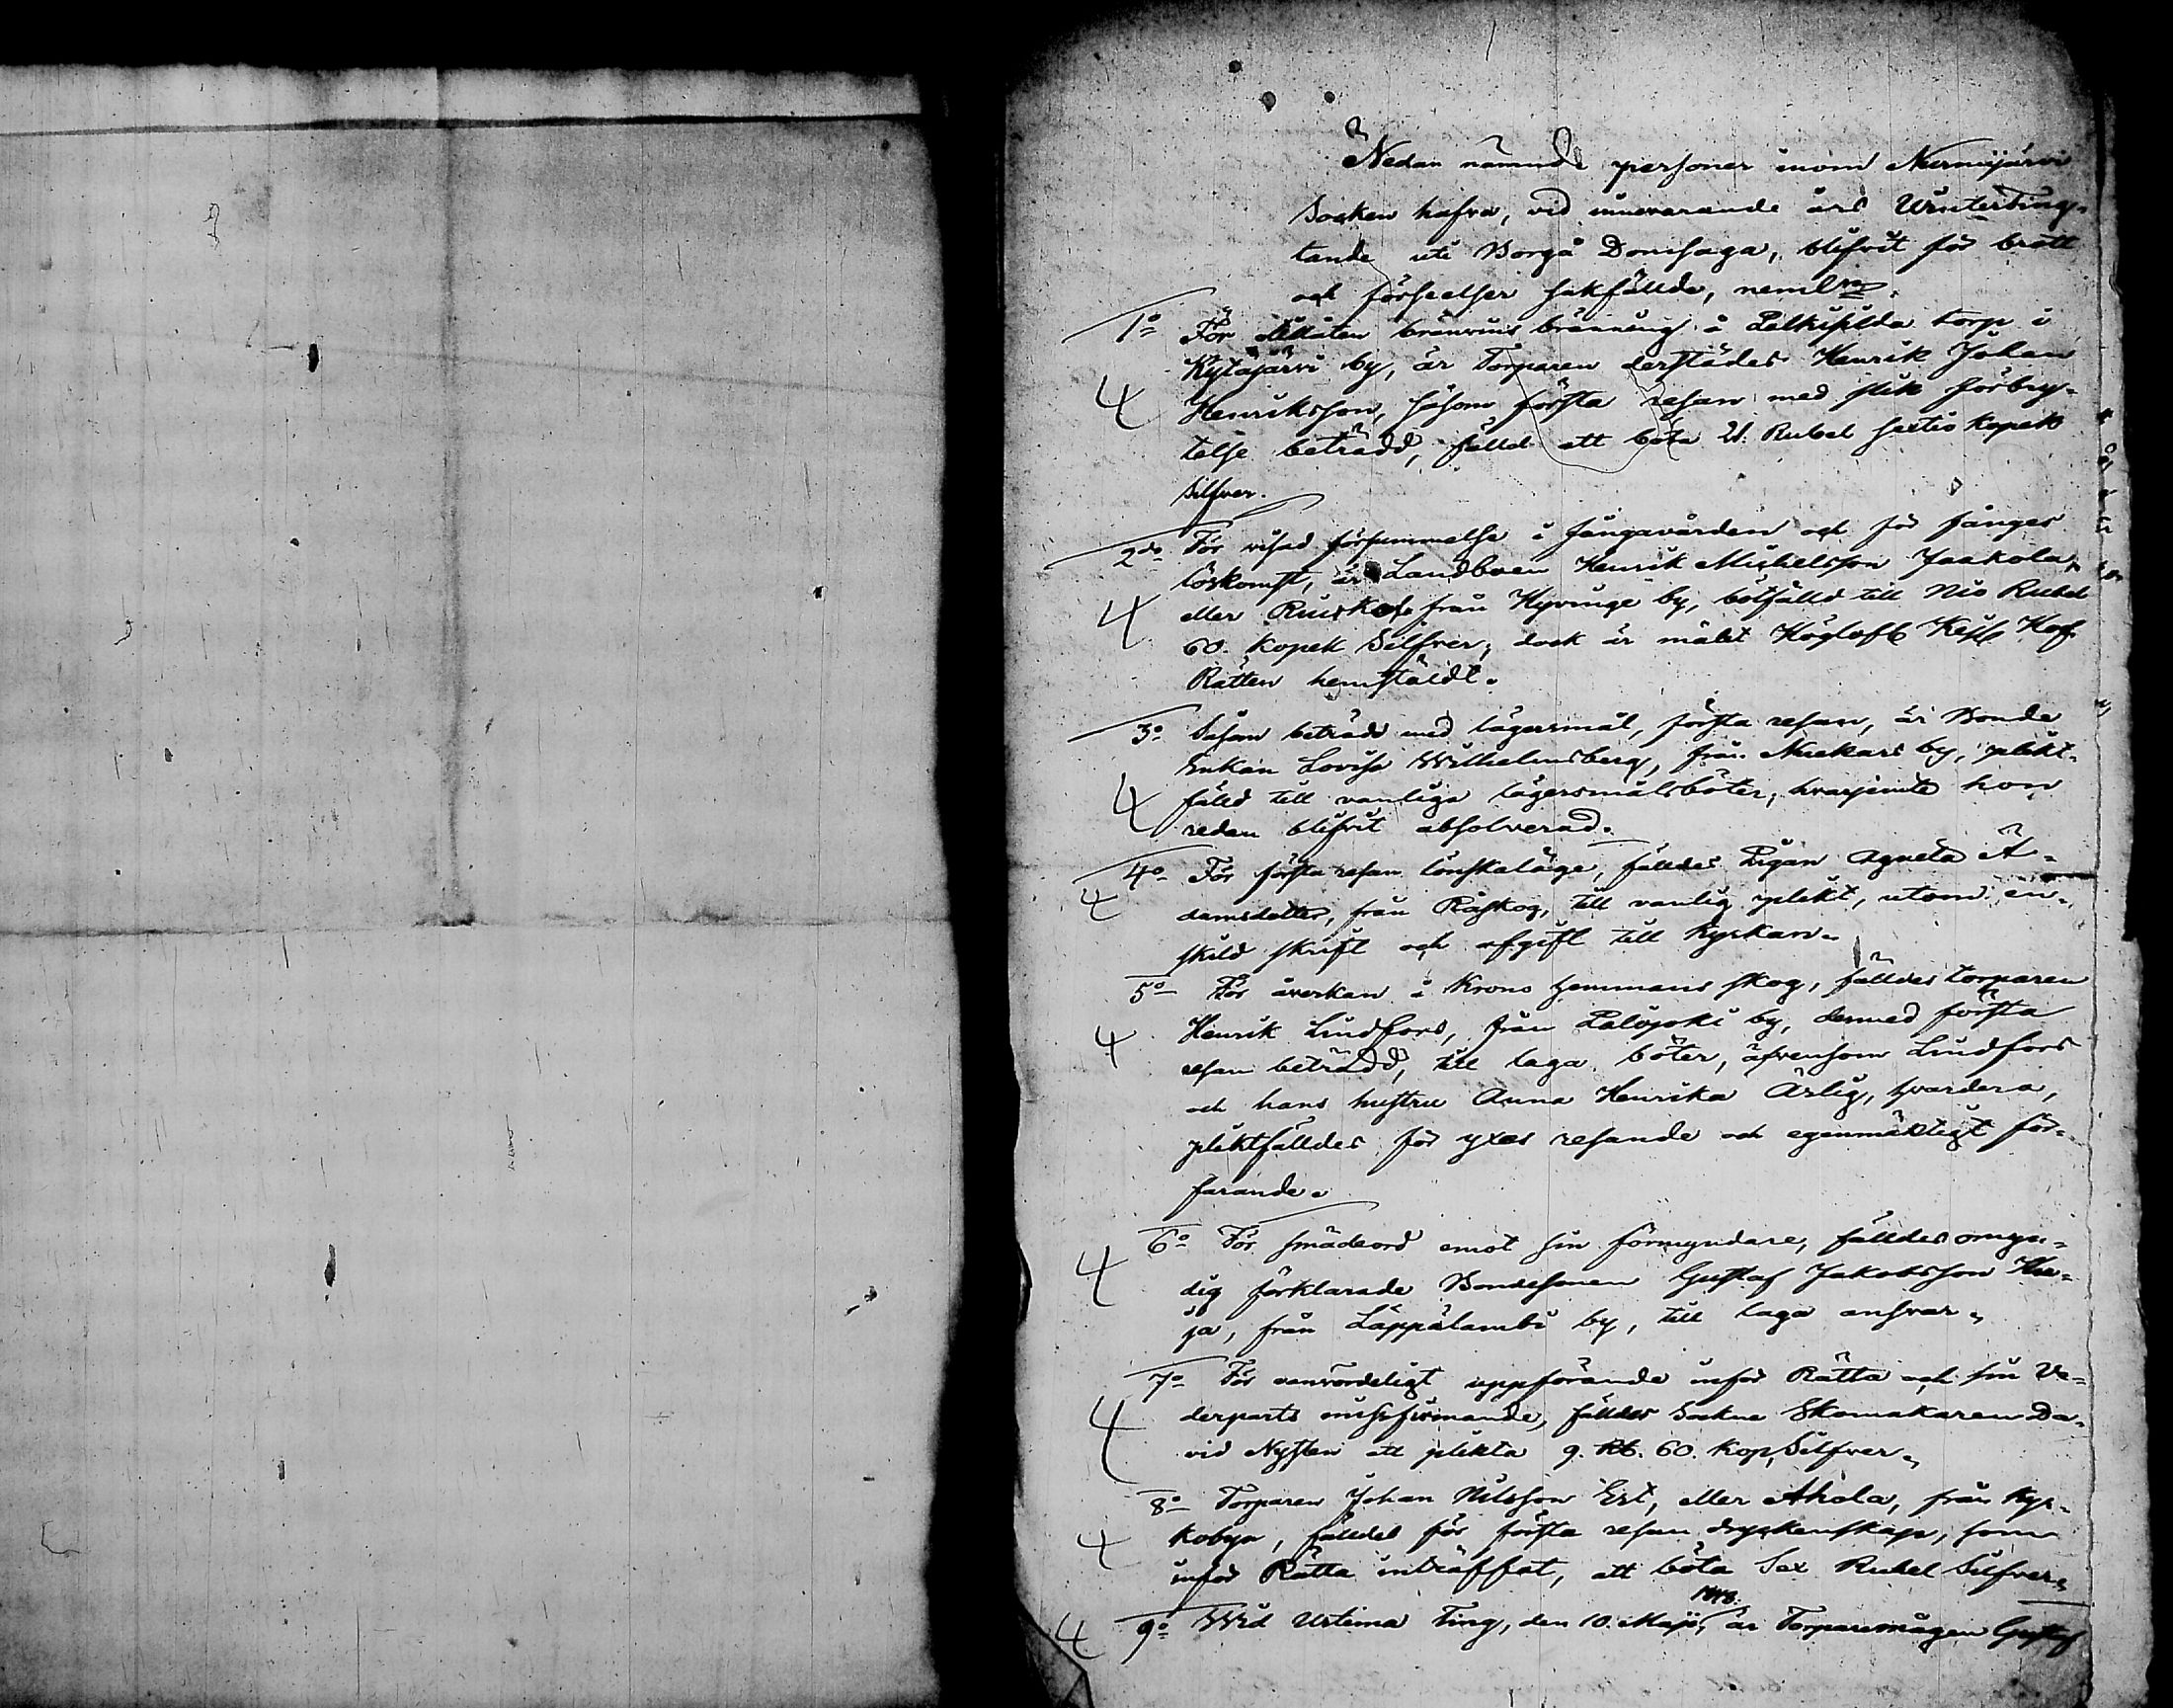 Nedan nämnde personer inom Nurmijärvi
Socken hafva, vid innevarande års Winterting,
tande uti Borgå Domsaga, blifvit för brott
och förseelser sakfällde, nemln
1o För olåten bränvins bränning å torp i
Kytäjärvi by, är Torparen derstädes Henrik Johan
Henriksson, såsom första resan med slik förbry-
telse beträdd, fälld att böta 21. Rubel sextio Kopek
Silfver.
2do För visad försummelse i fångavården och för fånges
löskomst, är Landboen Henrik Michelsson Jaakola,
eller från Hyvinge by, bötfälld till Nio Rubel
60. Kopek Silfver; dock är målet Högloft Kejs Hof
Rätten hemstäldt.
3o Såsom beträdd med lägersmål, första resan, är Bonde
Enkan Lovisa Wilhelmsberg, från Nuckars by, plikt-
fälld till vanliga lägersmålsböter, hvarjemte hon
redan blifvit absolverad.
4o För första resan lönskaläge, fälldes Pigan Agneta A-
damsdotter, från Råskog, till vanlig plikt, utom en-
skild skrift och afgift till Kyrkan.
5o För åverkan å Krono hemmans skog, fälldes torparen
Henrik Lindfors, från Palojoki by, dermed första
resan beträdd, till laga böter, äfvensom Lindfors
och hans hustru Anna Henrika Ärlig, hvardera,
pliktfälldes för yxas resande och egenmäktigt för-
farande.
6o För smädeord emot sin förmyndare, fälldes omyn-
dig förklarade Bondesonen Gustaf Jakobsson
ja, från Läppälambi by, till laga ansvar.
7o För vanvördeligt uppförande inför Rätta och sin Ve-
derparts missfirmande, fälldes Sockne Skomakaren Da-
vid Nysten att plikta 9. Rb. 60. Kop. Silfver.
8o Torparen Johan Nilsson Erl, eller Ahola, från Kyr-
kobyn, fälldes för första resan dryckenskap, som
inför Rätta inträffat, att böta Sex Rubel Silfver.
9o Wid Urtima Ting, den 10. Maji, 1848. är Torparemågen Gustaf